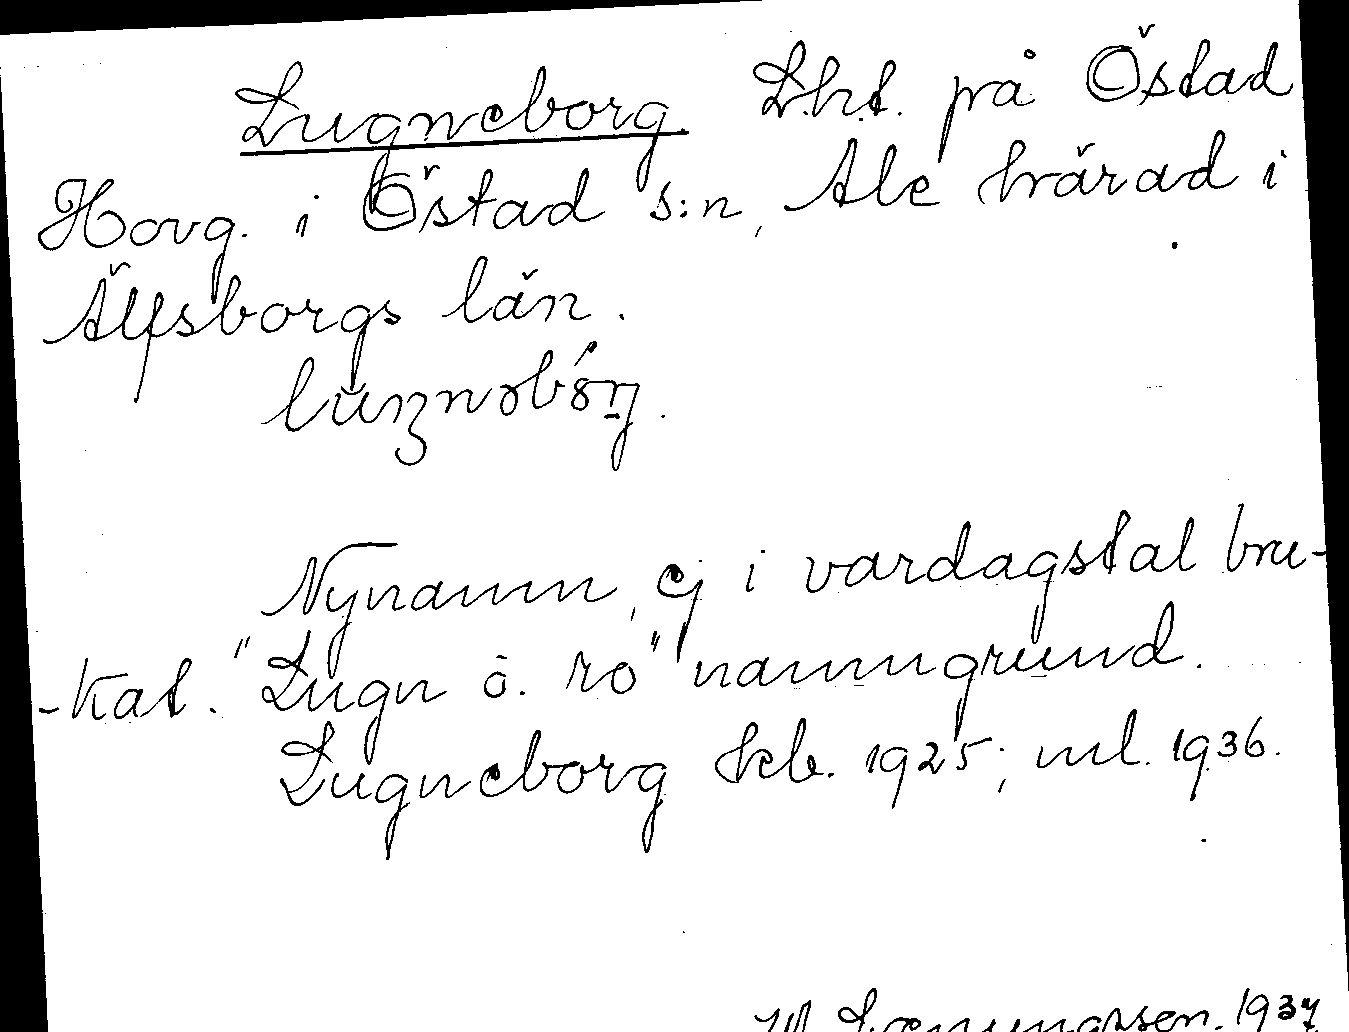 Lugneborg Lht. på Östad
Hovg. i Östad s:n, Ale härad i
Älfsborgs län.
Nynamn, ej i vardagstal bru-
-kat. "Lugn o. ro" namngrund.
Lugneborg kb. 1925; ml. 1936.
1937